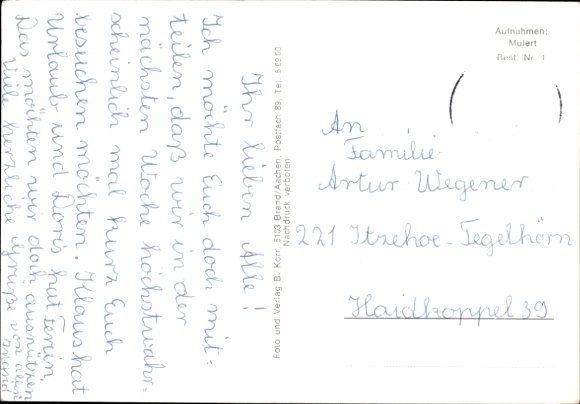 Ihr lieben Alle!
Ich möchte Euch doch mit=
teilen, daß wir in der
nächsten Woche höchstwahr=
scheinlich mal kurz Euch
besuchen möchten. Klaus hat
Urlaub und Doris hat Ferien.
Das möchten wir doch ausnützen
Viele herzliche Grüße von allen
Foto und Verlag B. Korr, 5103 Brand/Aachen, Postfach 89, Tel. 5 69 60
Nachdruck verboten
Aufnahmen:
Mulert
Best. Nr. 1
An
Familie
Artur Wegener
221 Itzehoe-Tegelhörn
Haidkoppel 39